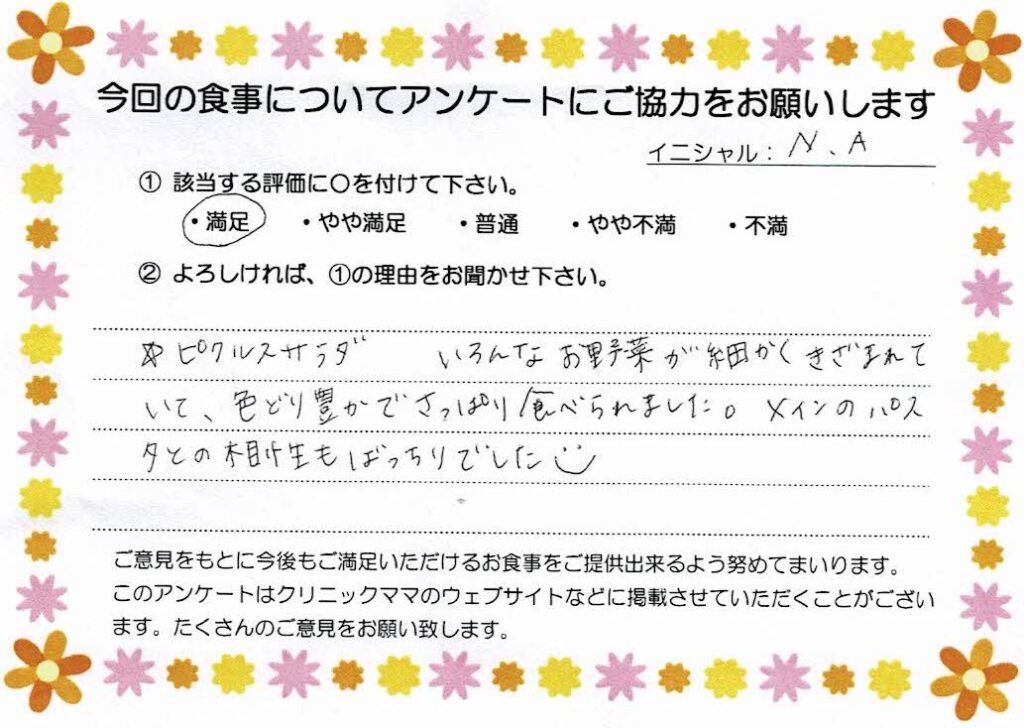 今回の食事についてアンケートにご協力をお願いします
イニシャル： N.A
① 該当する評価に〇を付けて下さい。
・満足 ・やや満足 ・普通 ・やや不満 ・不満
② よろしければ、①の理由をお聞かせ下さい。
☆ピクルスサラダ いろんなお野菜が細かくきざまれて
いて、色どり豊かでさっぱり食べられました。メインのパス
タとの相性もばっちりでした
ご意見をもとに今後もご満足いただけるお食事をご提供出来るよう努めてまいります。
このアンケートはクリニックママのウェブサイトなどに掲載させていただくことがござい
ます。たくさんのご意見をお願い致します。